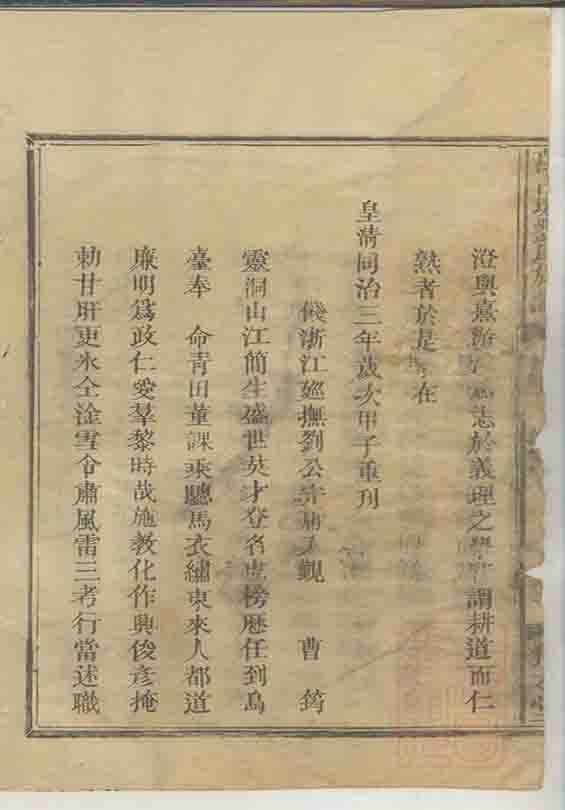 澄與熹游 志於義理之學 謂耕道而仁
熟者於是 在
皇淸同治三年歲次甲子重刋
餞浙江廵撫劉公 入覲 曹筠
靈洞山江簡生盛世英才登名虎榜歷任到烏
臺奉 命靑田董課乘驄馬衣繡東來人都道
廉明爲政仁愛羣黎時哉施敎化作興俊彦掩
勅甘肝更氷仝淦雪令肅風雷三考行當述職